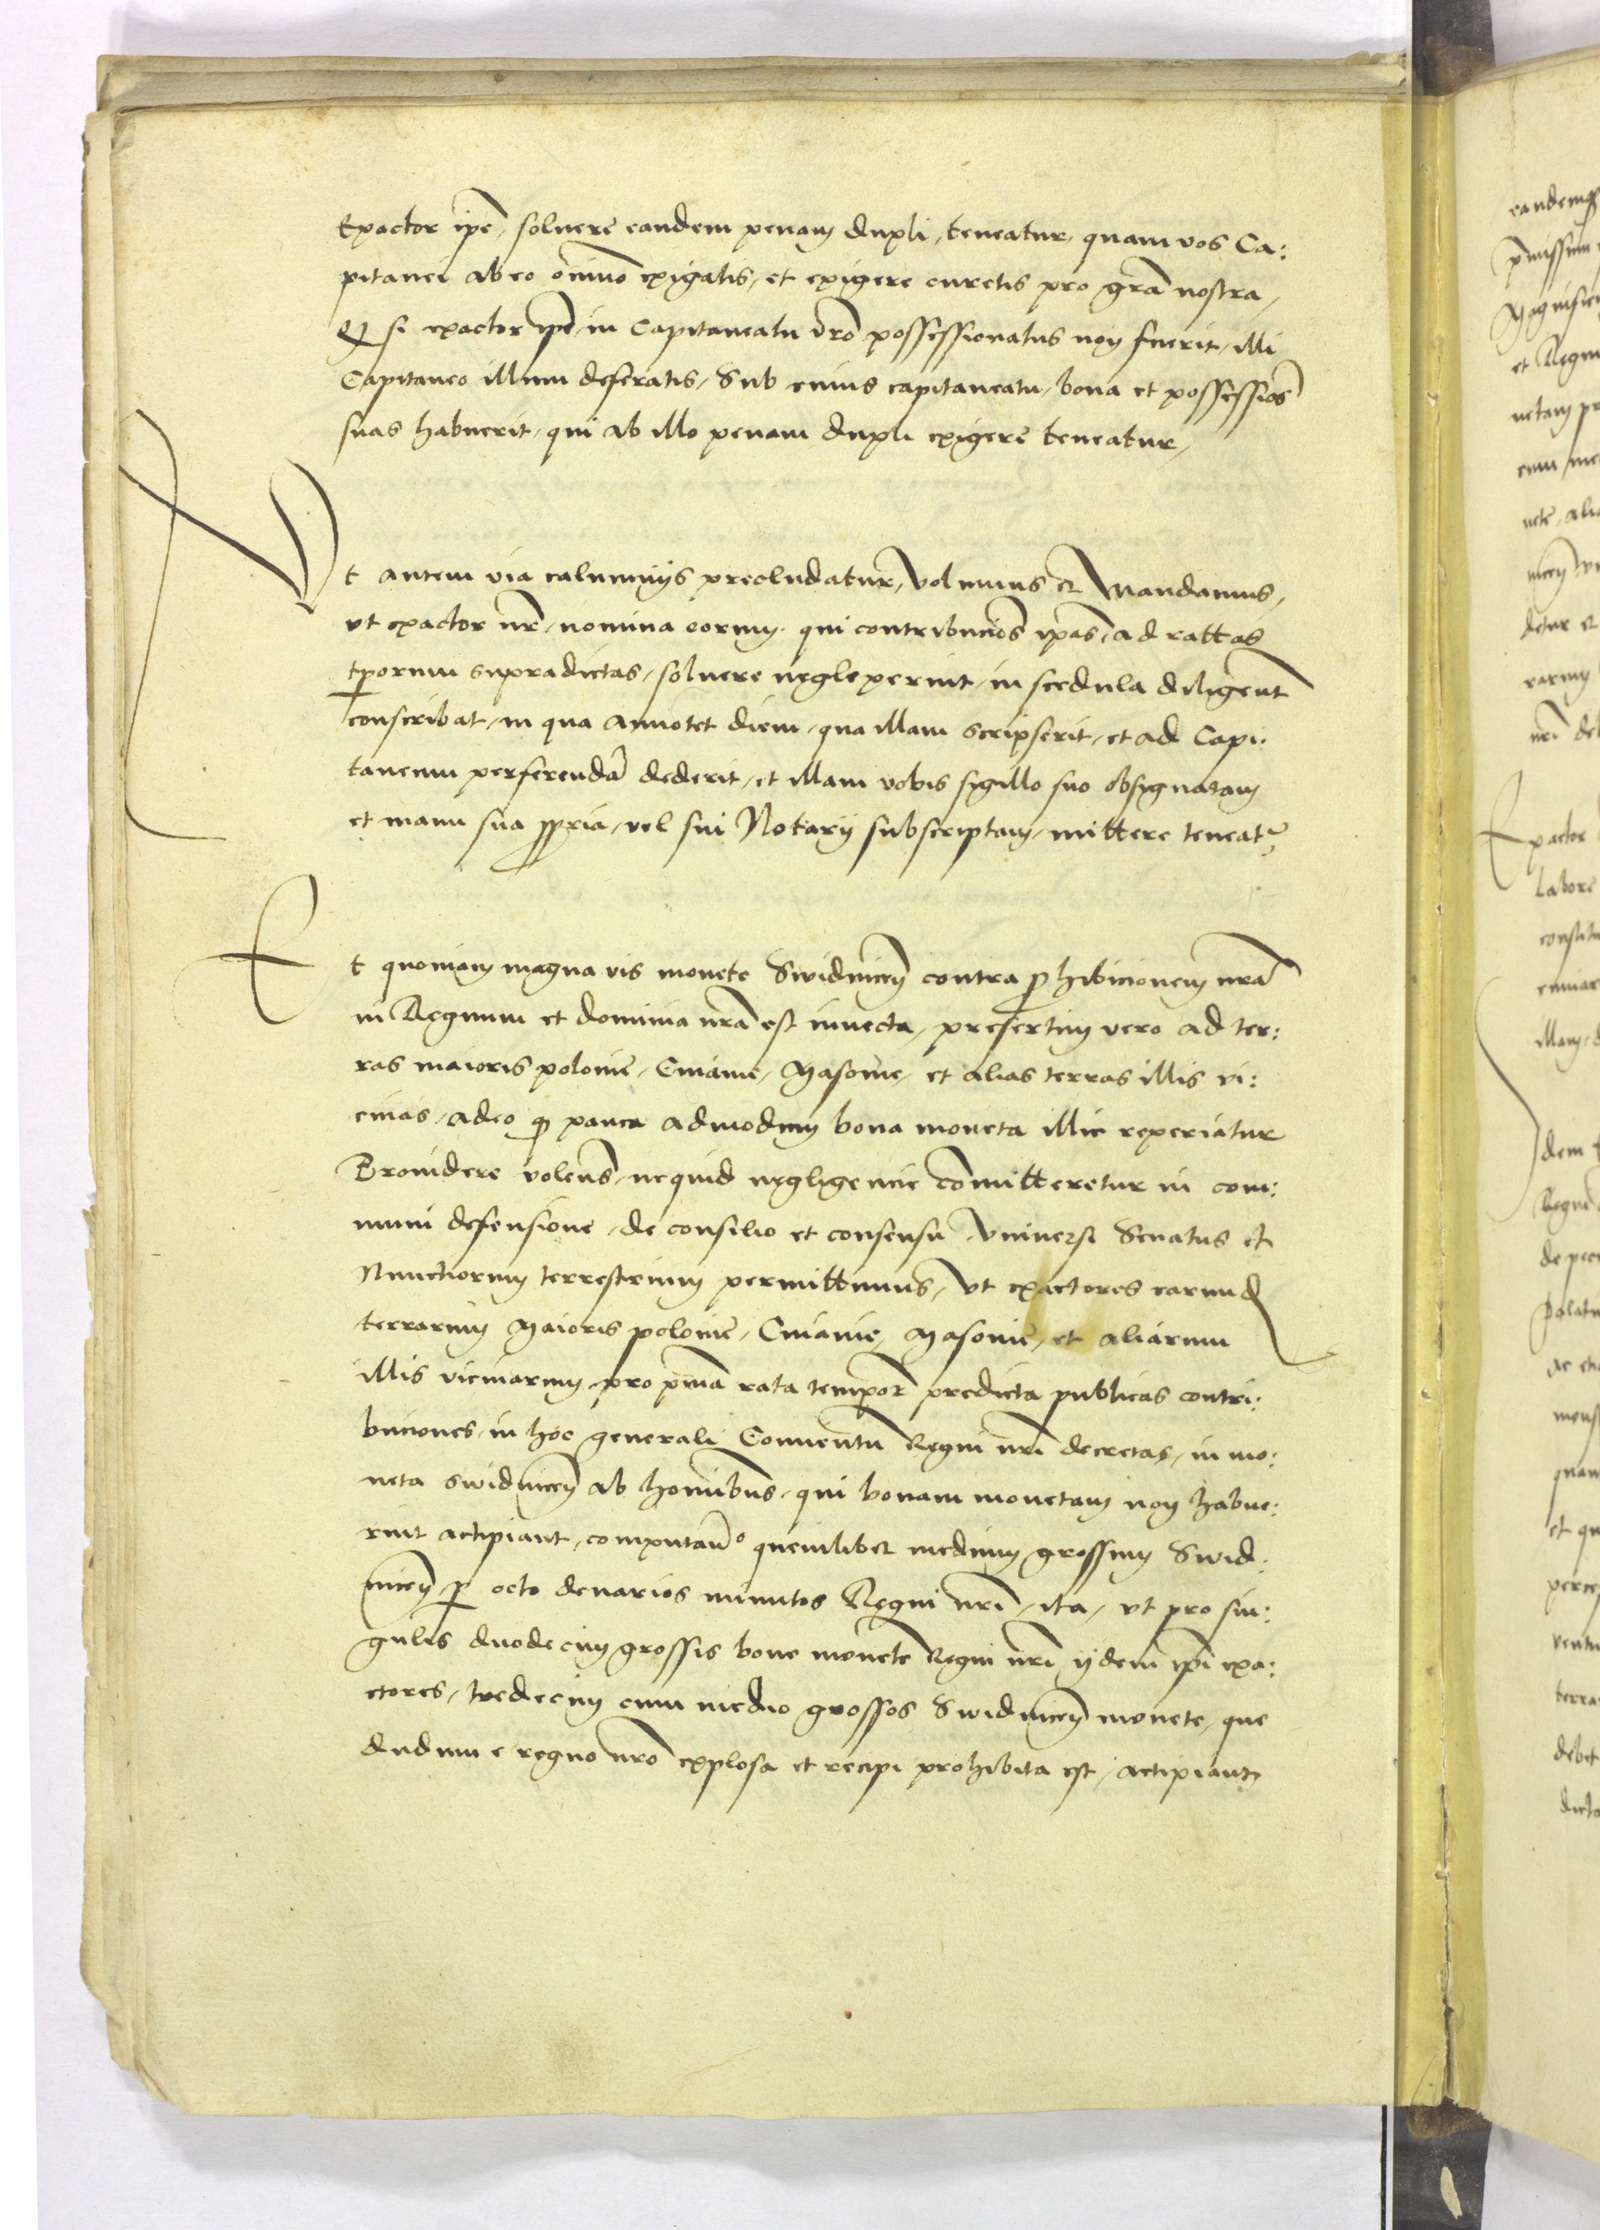 Exactor ipē, soluere eandem penam dupli, teneatur, quam vos Ca:
pitanei ab eo oīnino exigatis, et exigere curetis pro grā nostra,
Q si exactor ipē in Capitaneatu vrō possessionatus non fuerit, illi
Capitaneo illum deferatis, Sub cuius capitaneatu, bona et possessiōs
suas habuerit, qui ab illo penam dupli exigere teneatur,
Vt autem via calumnijs precludatur, volumus et Mandamus,
vt exactor nr̄, nomina eorum, qui contribuciōs ipās, ad rattas
tp̄orum supradictas, soluere neglexerint, in scedula diligent̄
conscribat, in qua annotet diem, qua illam scripserit, et ad Capi:
taneum perferendā dederit, et illam vobis sigillo suo obsignatam
et manu sua ppria, vel sui Notarij subscriptam, mittere teneat̄
Et quoniam magna vis monete Swidnicen̄ contra phibicionem nrā
in Regnum et dominia nrā est inuecta, presertim vero ad ter:
ras maioris polonie, Cuiauie, Masouie, et alias terras illis vi:
cinas, adeo q pauca admodum bona moneta illic reperiatur
Prouidere volens, ne quid negligencie cōmitteretur in com:
muni defensione, de consilio et consensu vniuersi Senatus et
Nunctiorum terrestrium permittimus, vt exactores earund
terrarum Maioris polonie, Cuiauie, Masouie, et aliarum
illis vicinarum, pro prīa rata tempor̄ predicta publicas contri:
buciones, in hoc generali Conuentu Regni nrī decretas, in mo:
neta swidnicen̄ ab hominibus, qui bonam monetam non habue:
rint actipiant, computand̄o quemlibet medium grossum Swid:
nicen̄ p octo denarios minutos Regni nrī, ita, vt pro sin:
gulis duodecim grossis bone monete Regni nrī ijdem ipī exa:
ctores, tredecim cum medio grossos Swidnicen̄ monete, que
dudum e regno nrō explosa et recipi prohibita est, actipiant